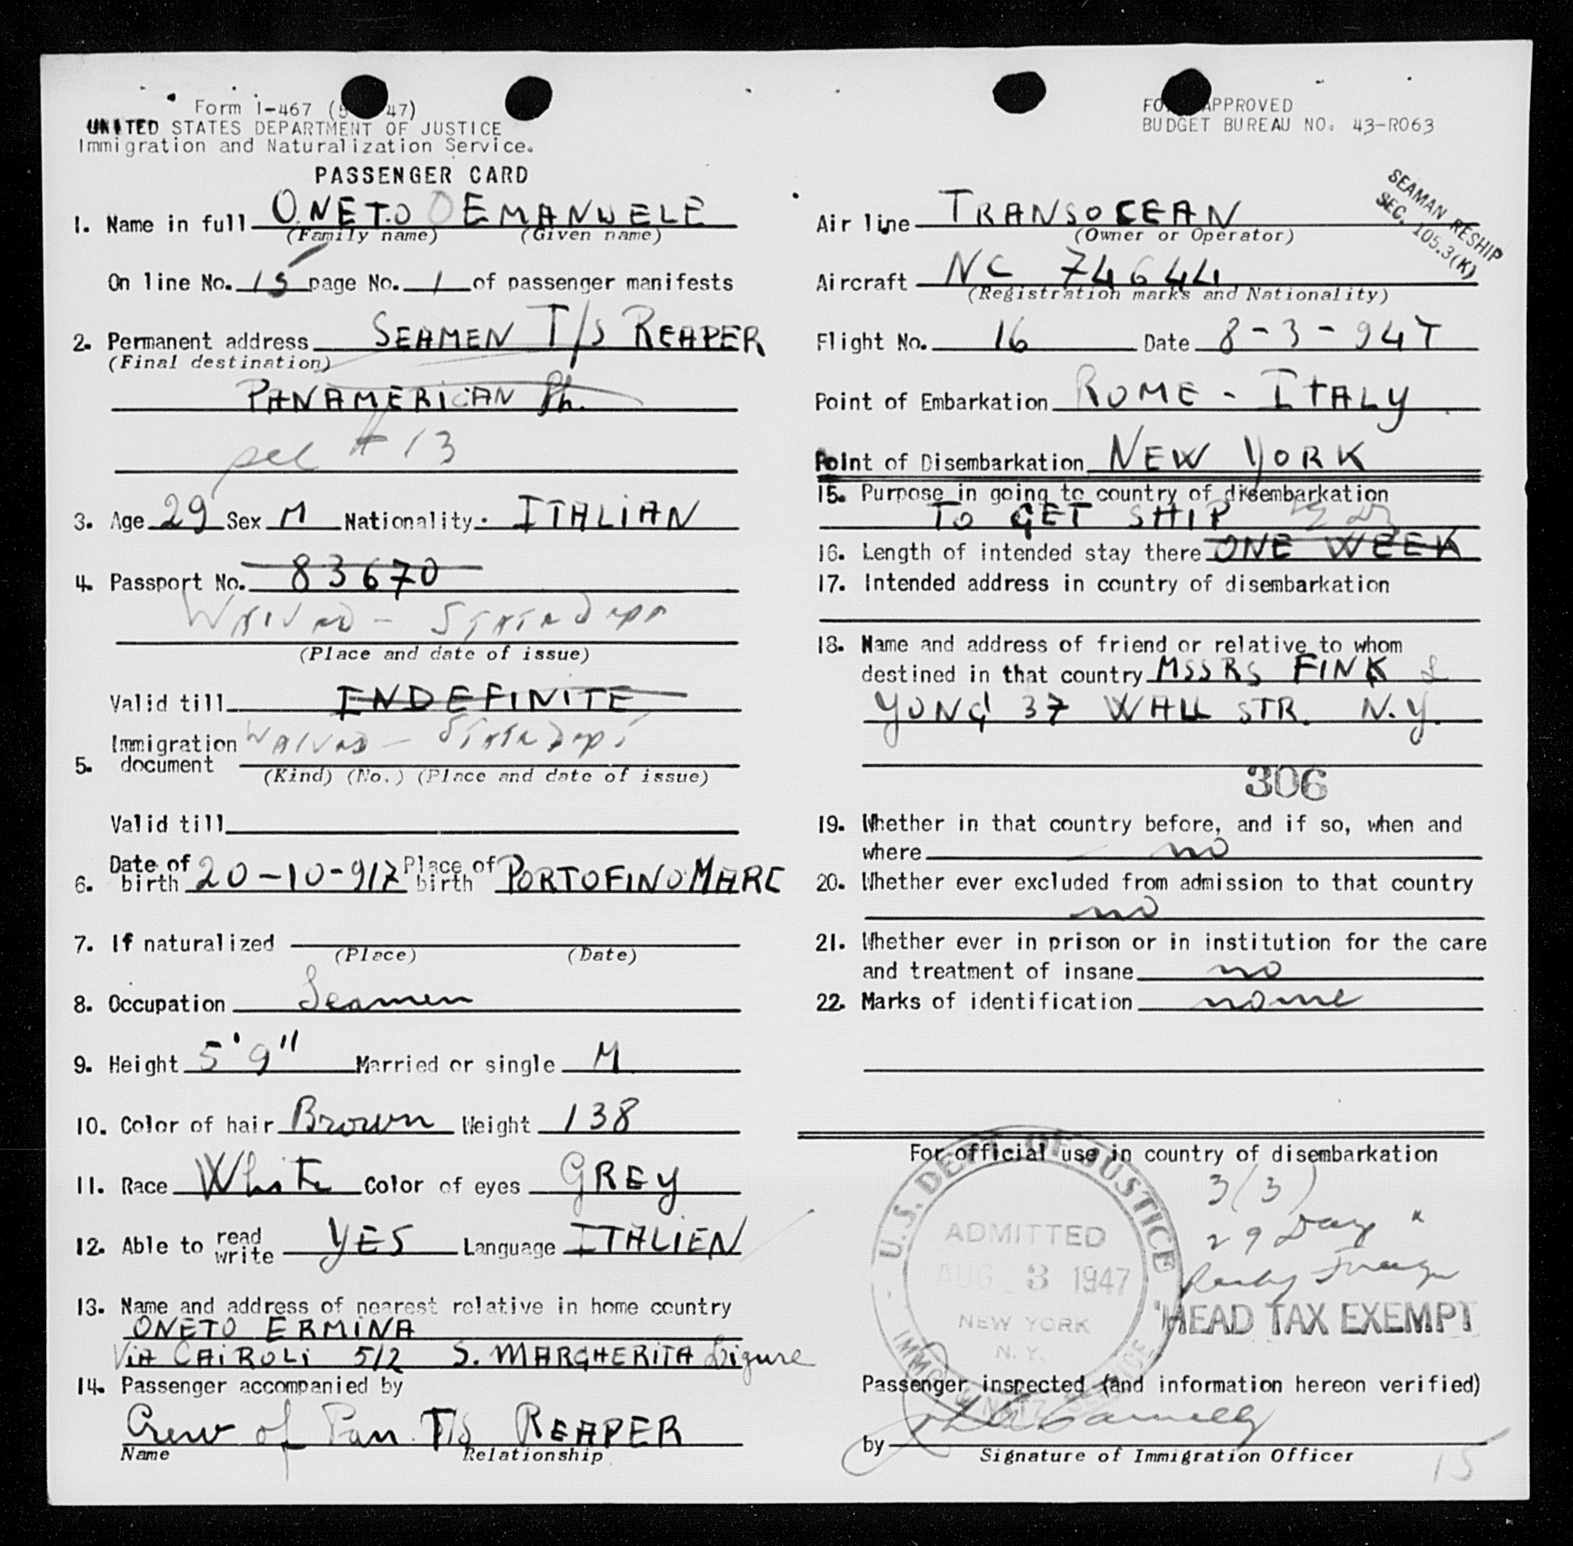 Form I-467 (5 47)
UNITED STATES DEPARTMENT OF JUSTICE
Immigration and Naturalization Service.
PASSENGER CARD
1. Name in full ONETO EMANUELE
(Family name) (Given name)
On line No. 15 page No. 1 of passenger manifests
2. Permanent address SEAMEN T/S REAPER
(Final destination)
PANAMERICAN Sh.
see # 13
3. Age 29 Sex M Nationality. ITALIAN
4. Passport No. 83670
WAIVED - STATE DEPT
(Place and date of issue)
Valid till INDEFINITE
Immigration WAIVED - STATE DEPT
5. document
(Kind) (No.) (Place and date of issue)
Valid till
6. Date of birth 20-10-917 Place of birth PORTOFINO MARE
7. If naturalized
(Place) (Date)
8. Occupation Seamen
9. Height 5'9" Married or single M
10. Color of hair Brown Weight 138
11. Race White Color of eyes GREY
12. Able to read write YES Language ITALIEN
13. Name and address of nearest relative in home country
ONETO ERMINA
VIA CAIROLI 5/2 S. MARGHERITA Ligure
14. Passenger accompanied by
Crew of Pan T/S REAPER
Name Relationship
FO APPROVED
BUDGET BUREAU NO. 43-R063
SEAMAN RESHIP
SEC. 105.3(K)
Air line TRANSOCEAN
(Owner or Operator)
Aircraft NC 74644
(Registration marks and Nationality)
Flight No. 16 Date 8-3-947
Point of Embarkation ROME - ITALY
Point of Disembarkation NEW YORK
15. Purpose in going to country of disembarkation
TO GET SHIP
16. Length of intended stay there ONE WEEK
17. Intended address in country of disembarkation
18. Name and address of friend or relative to whom
destined in that country MSSRS FINK &
YONG' 37 WALL STR. N.Y.
306
19. Whether in that country before, and if so, when and
where no
20. Whether ever excluded from admission to that country
no
21. Whether ever in prison or in institution for the care
and treatment of insane no
22. Marks of identification none
For official use in country of disembarkation
3(3)
29 Days
U.S. DEPT. OF JUSTICE
ADMITTED
AUG 3 1947
NEW YORK
N. Y.
HEAD TAX EXEMPT
Passenger inspected (and information hereon verified)
by
Signature of Immigration Officer
15